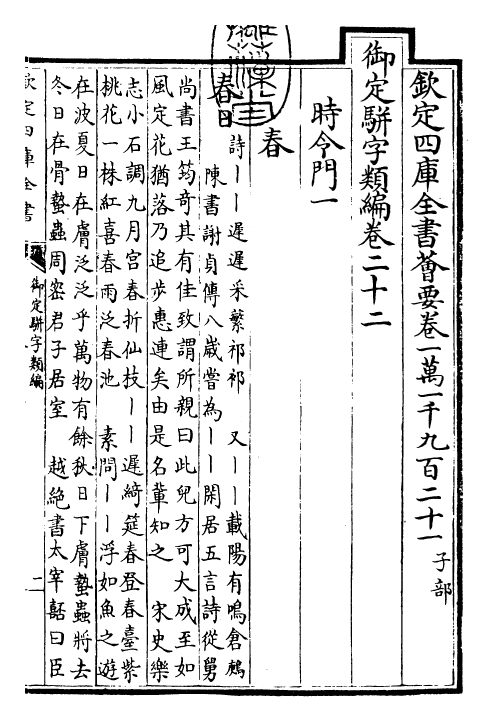 欽定四庫全書薈要卷一萬一千九百二十一子部
御定騈字類編卷二十二
時令門一
春
春日詩丨丨遲遲采蘩祁祁 又丨丨載陽有鳴倉鶊
陳書謝貞傳八歳嘗為丨丨閑居五言詩從舅
尚書王筠竒其有佳致謂所親曰此兒方可大成至如
風定花猶落乃追步惠連矣由是名輩知之 宋史樂
志小石調九月宮春折仙枝丨丨遲綺筵春登春臺紫
桃花一株紅喜春雨泛春池 素問丨丨浮如魚之遊
在波夏日在膚泛泛乎萬物有餘秋日下膚蟄蟲將去
冬日在骨蟄蟲周宻君子居室 越絶書太宰嚭曰臣
欽定四庫全書
御定騈字類編
二